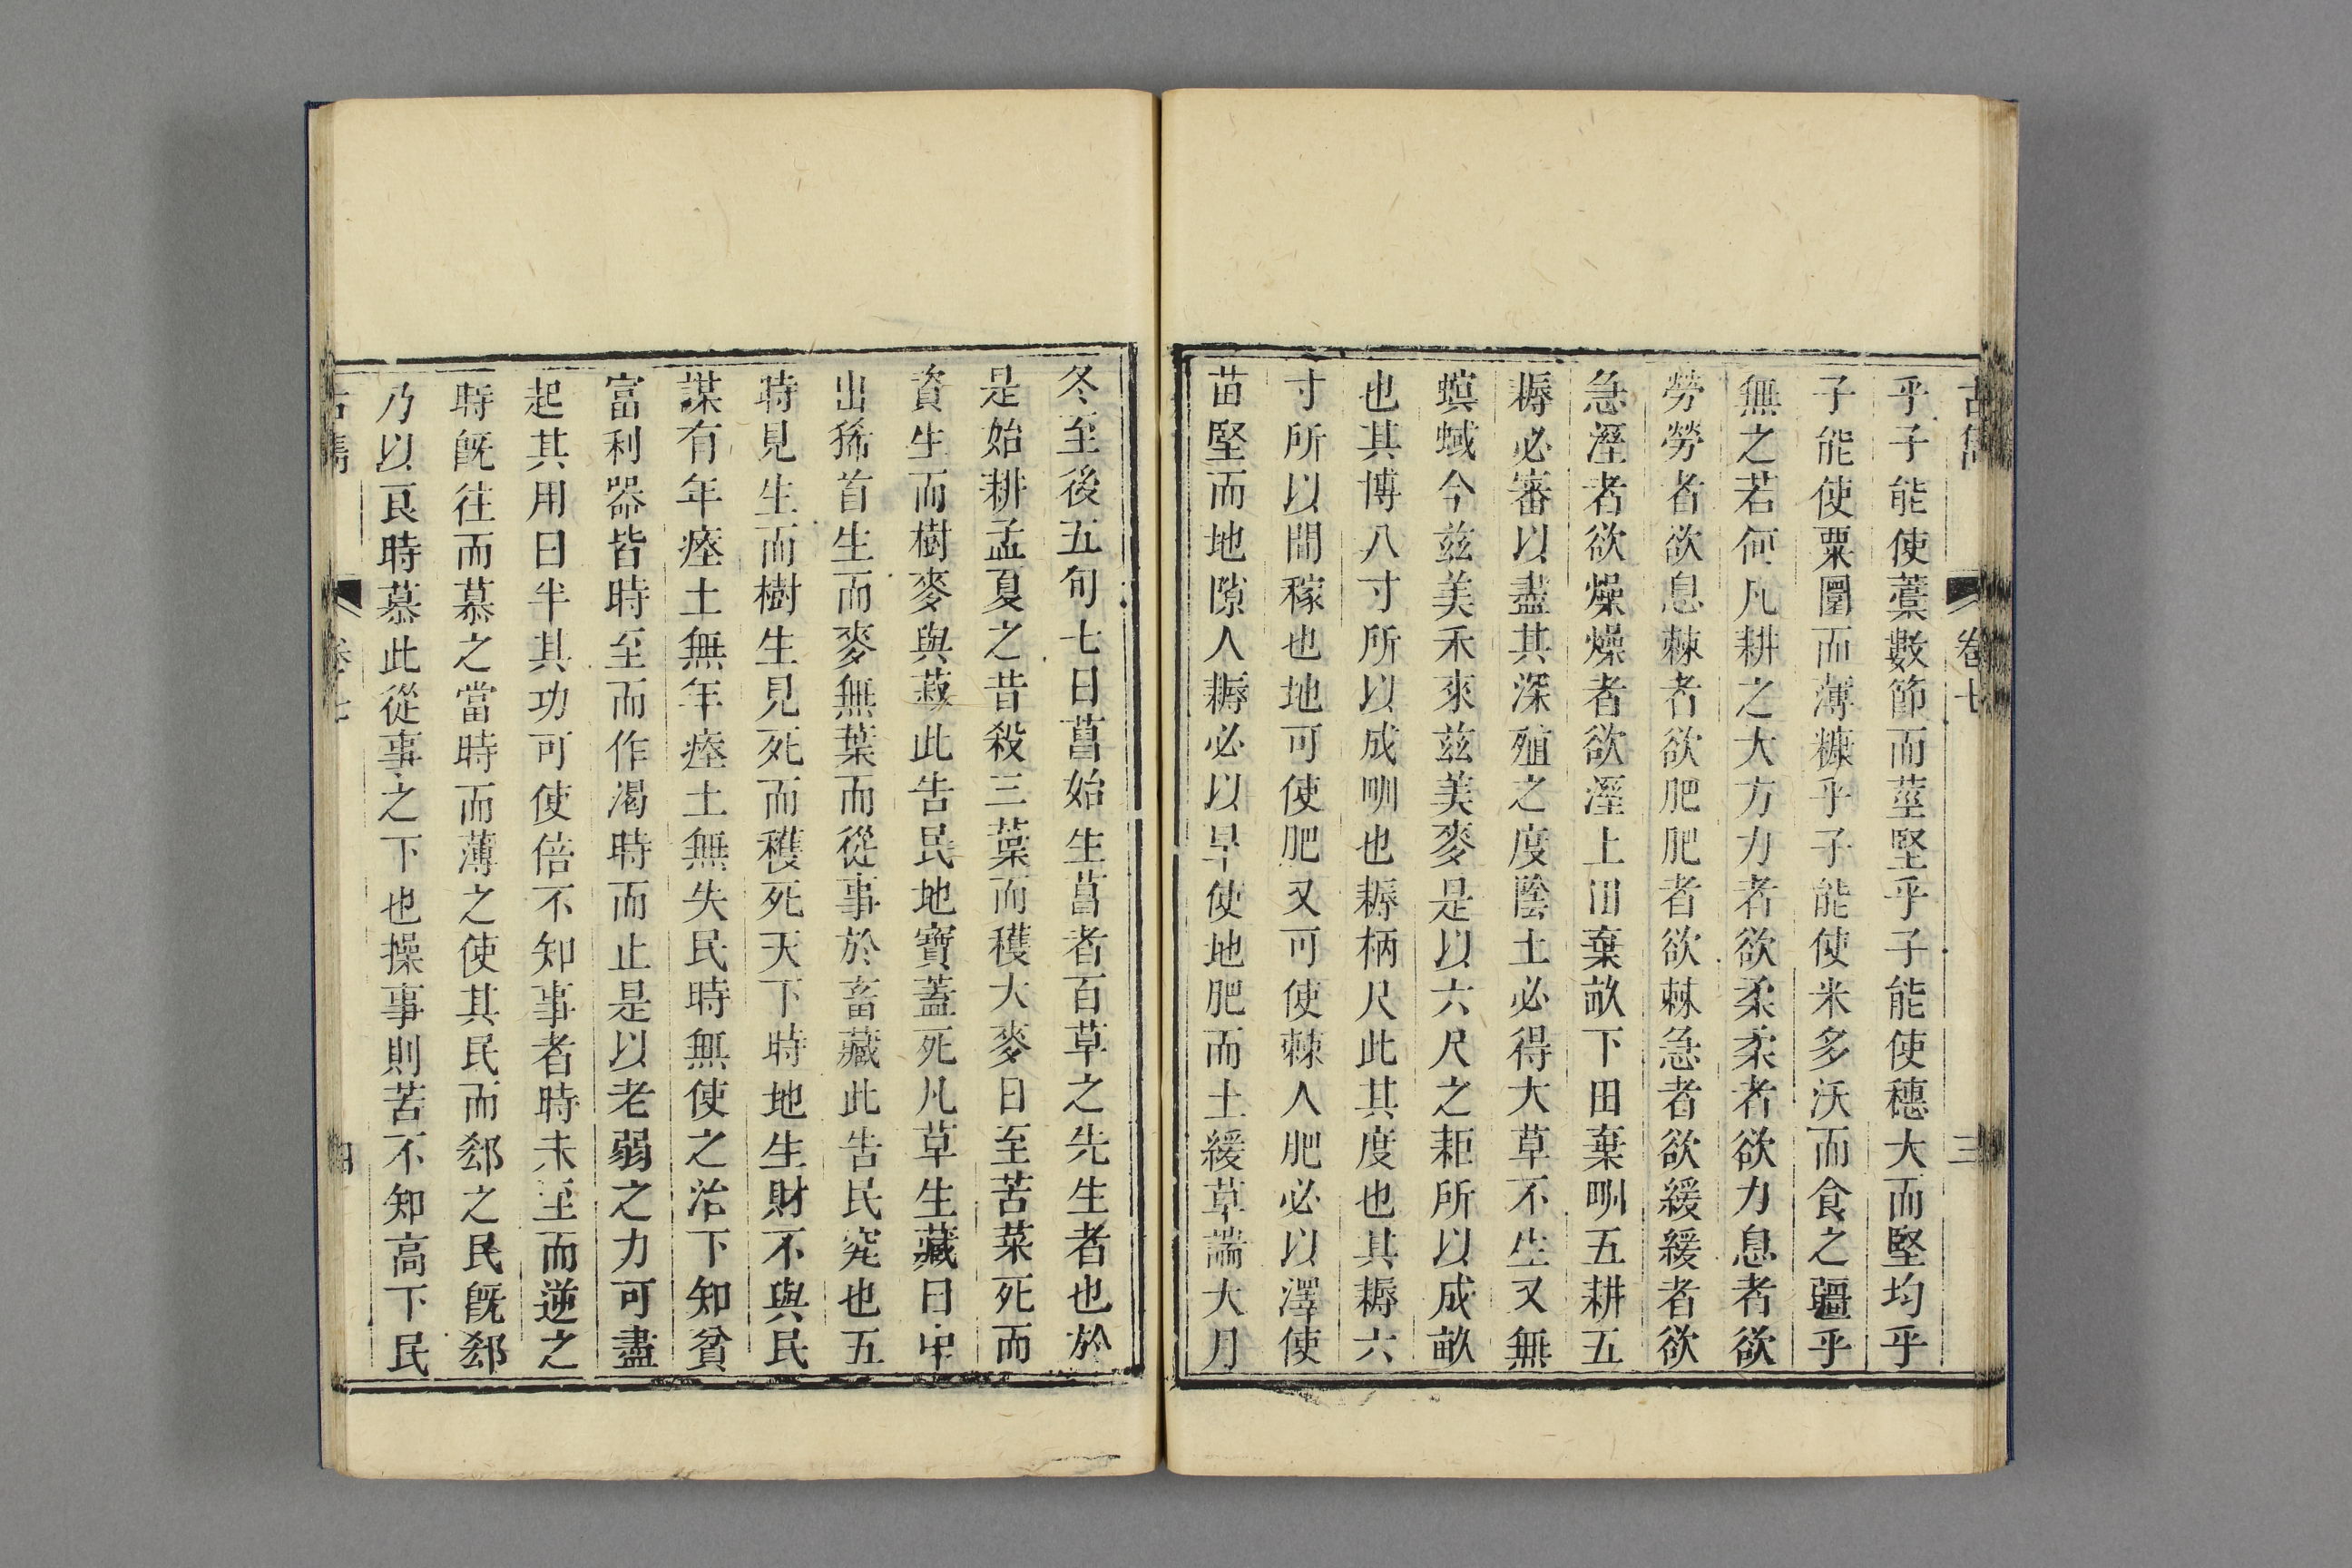 卷七
三
乎子能使藳數節而莖堅乎子能使穗大而堅均乎
子能使粟圜而薄糠乎子能使米多沃而食之疆乎
無之若何凡耕之大方力者欲柔柔者欲力息者欲
勞勞者欲息棘者欲肥肥者欲棘急者欲緩緩者欲
急溼者欲燥燥者欲溼上田棄畝下田棄甽五耕五
耨必審以盡其深殖之度陰土必得大草不生又無
螟蜮今茲美禾來茲美麥是以六尺之耟所以成畝
也其博八寸所以成甽也耨柄尺此其度也其耨六
寸所以間稼也地可使肥又可使棘人肥必以澤使
苗堅而地隙人耨必以旱使地肥而土緩草諯大月
冬至後五旬七日菖始生菖者百草之先生者也於
是始耕孟夏之昔殺三葉而穫大麥日至苦菜死而
資生而樹麥與菽此告民地寶蓋死凡草生藏日中
出狶首生而麥無葉而從事於畜藏此告民究也五
時見生而樹生見死而穫死天下時地生財不與民
謀有年瘞土無年瘞土無失民時無使之治下知貧
富利器皆時至而作渴時而止是以老弱之力可盡
起其用日半其功可使倍不知事者時未至而逆之
時旣往而慕之當時而薄之使其民而郄之民旣郄
乃以良時慕此從事之下也操事則苦不知高下民